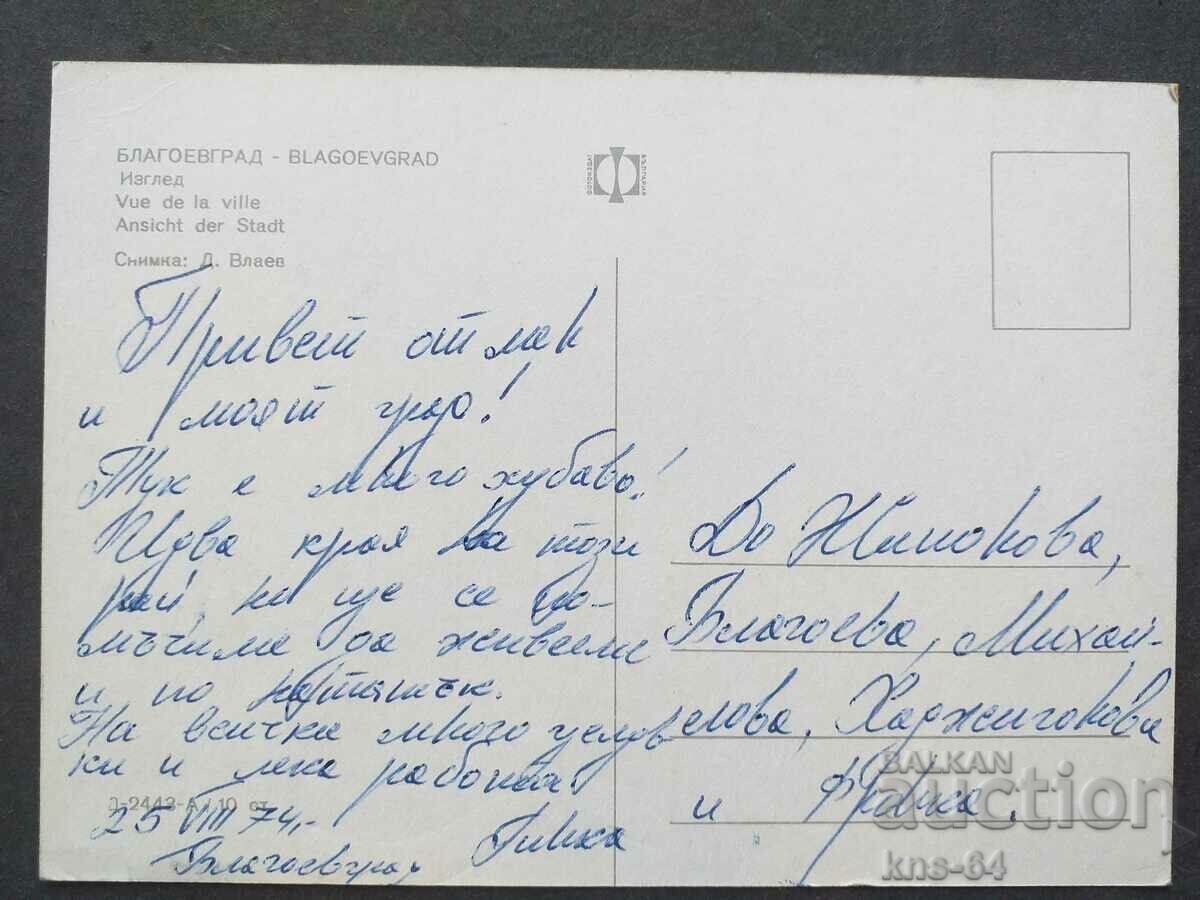 БЛАГОЕВГРАД - BLAGOEVGRAD
Изглед
Vue de la ville
Ansicht der Stadt
Снимка: Д. Влаев
Привет от пак
и моят град!
Тук е много хубаво!
Идва края на този
рай, но ще се по-
мъчиме да живееме
и по нататък.
На всички много целув
ки и лека работа!
Д-2443-А / 10 ст.
25 VIII 74,-
Благоевград
Гинка
До Жинокова,
Благоева, Михай-
лова, Хаджигокова
и Фравка.
BALKAN
auction
kns-64